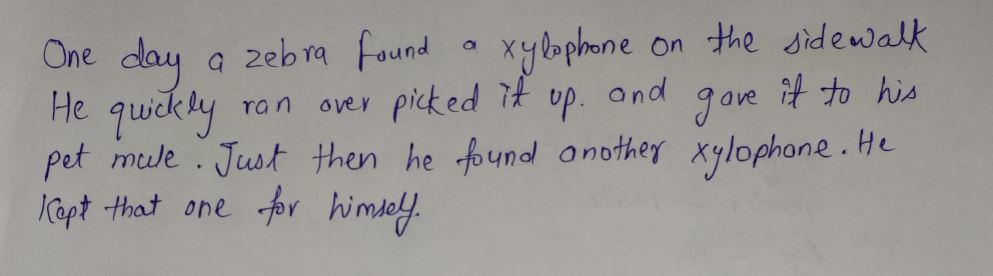 One day a zebra found a xylophone on the sidewalk
He quickly ran over picked it up. and gave it to his
pet mule. Just then he found another xylophone. He
Kept that one for himself.